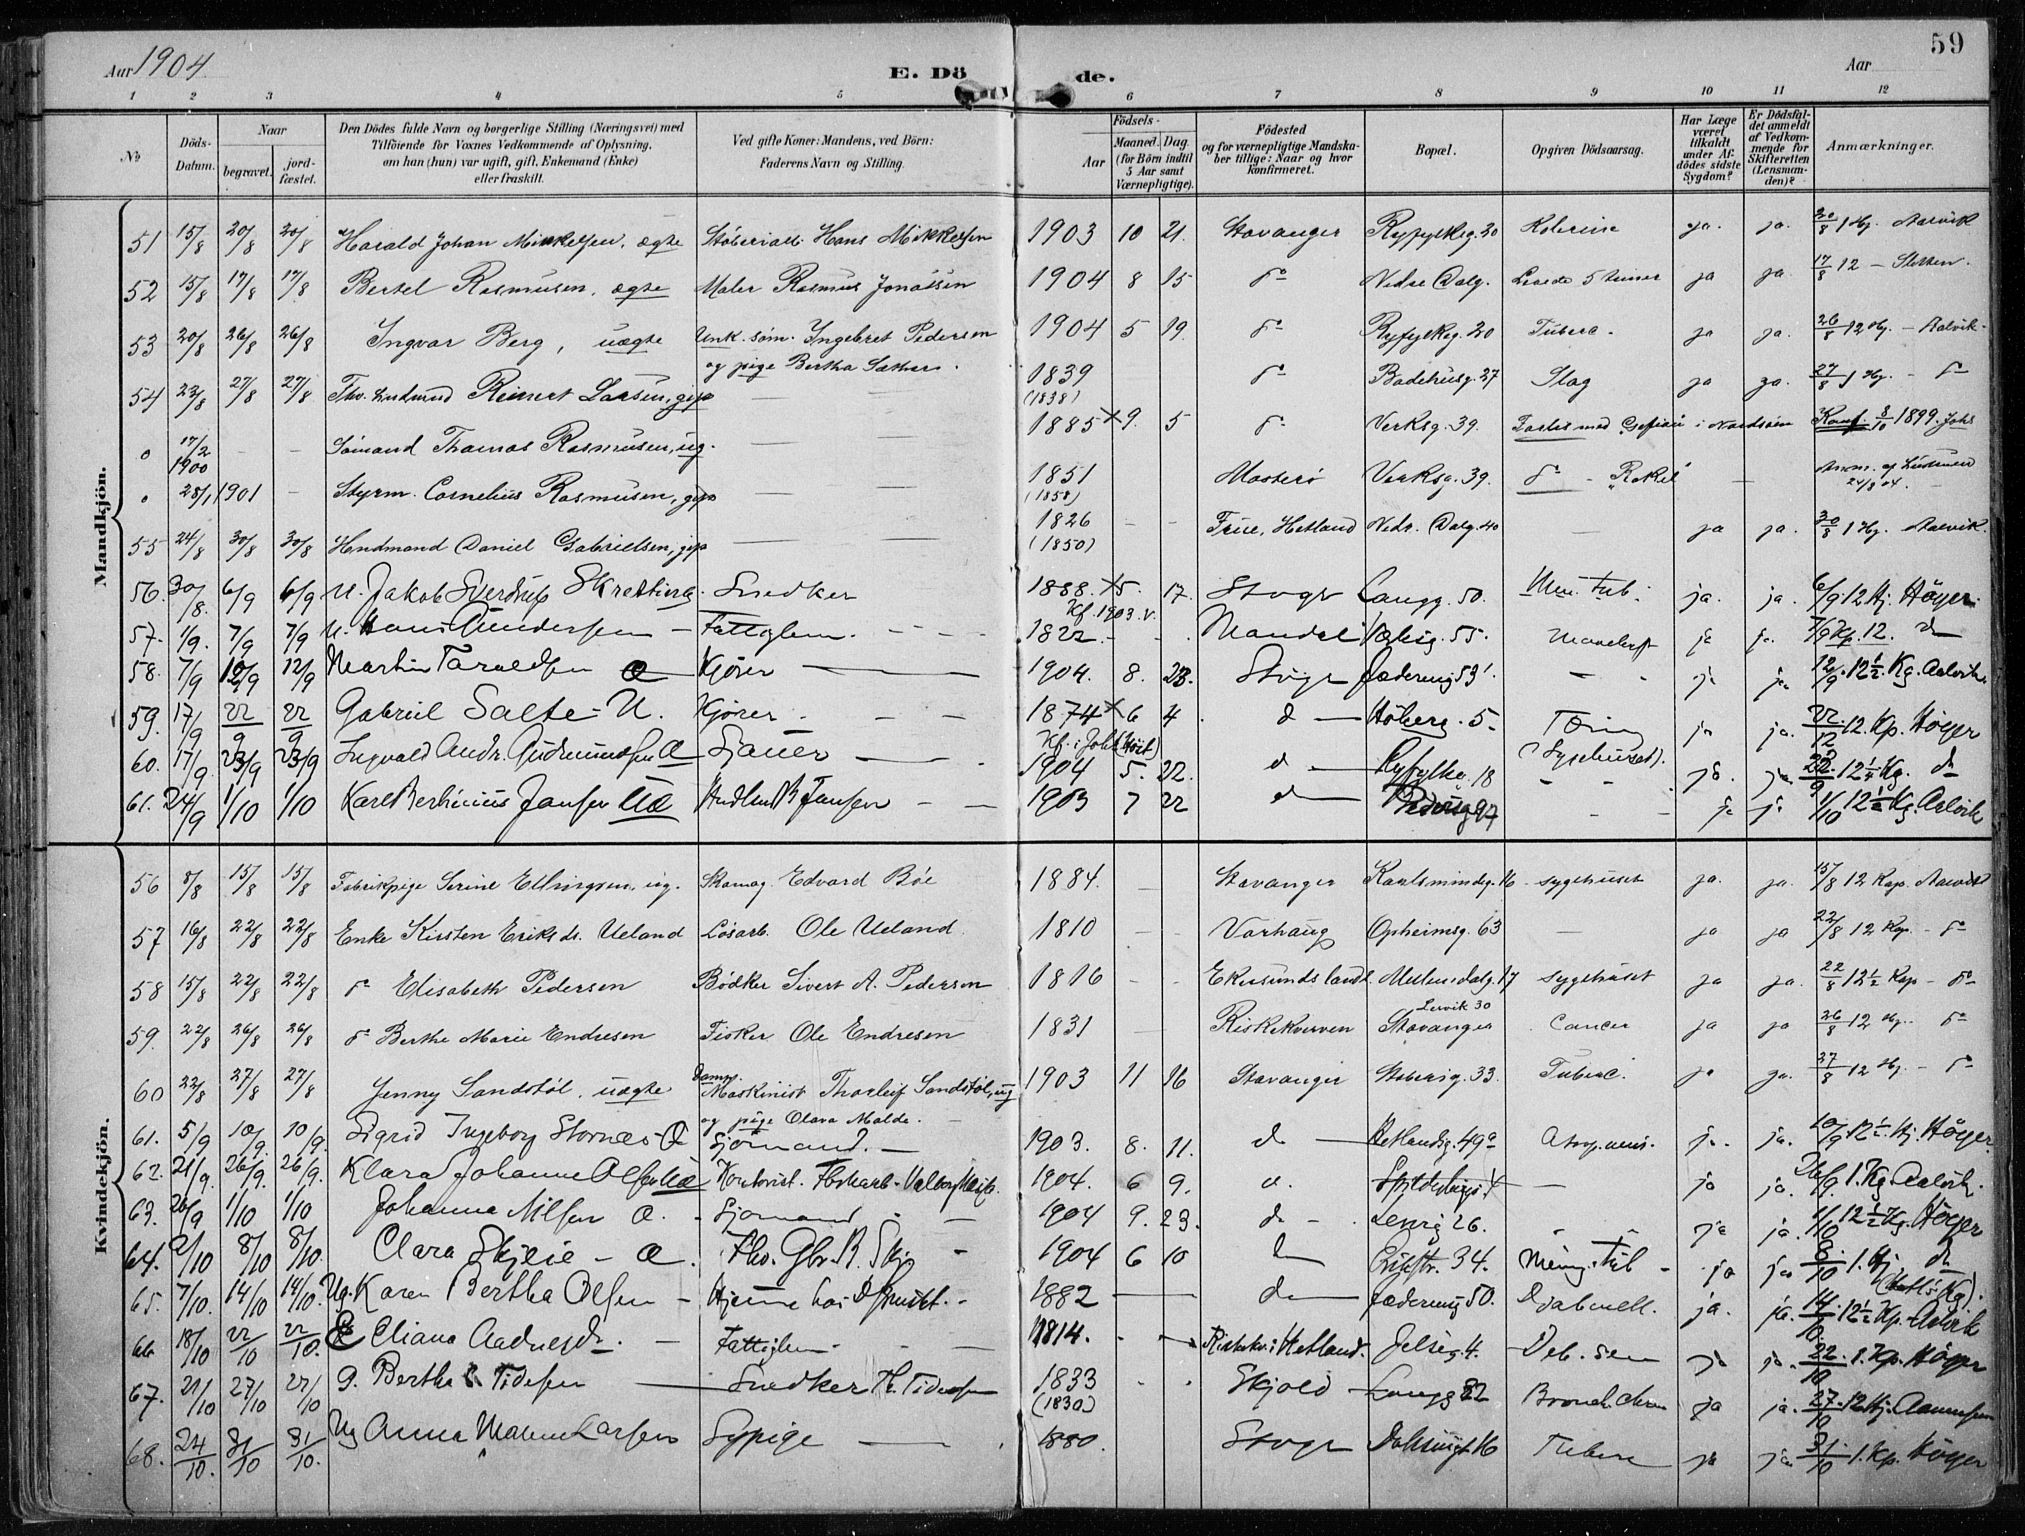 59
Aar 1904. E. Dö de. Aar
1 2 3 4 5 6 7 8 9 10 11 12
№ Döds-Datum. Naar begravet. jord-fæstet. Den Dödes fulde Navn og borgerlige Stilling (Næringsvei) med Tilföiende for Voxnes Vedkommende af Oplysning, om han (hun) var ugift, gift, Enkemand (Enke) eller fraskilt. Ved gifte Koner: Mandens, ved Börn: Faderens Navn og Stilling. Födsels- Aar Maaned. Dag. (for Börn indtil 5 Aar samt Værnepligtige). Födested og for værnepligtige Mandskaber tillige: Naar og hvor konfirmeret. Bopæl. Opgiven Dödsaarsag. Har Læge været tilkaldt under Afdödes sidste Sygdom? Er Dödsfaldet anmeldt af Vedkommende for Skifteretten (Lensmanden)? Anmærkninger.
Mandkjön.
51 15/8 20/8 20/8 Harald Johan Mikkelsen, ægte Støberiarb. Hans Mikkelsen 1903 10 21. Stavanger Ryfylkeg. 20 Kolerine ja. ja. 20/8 1 Hj. Aarvik
52 15/8 17/8 17/8 Bertel Rasmusen, ægte Maler Rasmus Jonassen 1904 8 15 do Nedre Dalg. Levede 5 timer ja ja. 17/8 12 – Sletten.
53 20/8 26/8 26/8 Ingvar Berg, uægte Unk. søm. Ingebret Pedersen 1904 5 19. do Ryfylkeg. 20 Tuberc. ja ja. 26/8 12 Hj. – Aalvik.
og pige Bertha
54 23/8 27/8 27/8 Reinert Larsen, gift — — 1839 (1838) do Badehusg. 27 Slag ja ja. 27/8 1 Hj. – do
o 17/2 1900 - - Sömand Thomas Rasmusen, ug. — — 1885 × 9. 5 do Verksg. 39. Forlist med i Nordsøen Konf. 8/10 1899. Joh's
o 28/1 1901 - Styrm. Cornelius Rasmusen, gift — — 1851 (1858) Mosterö Verksg. 39. do - "Rakel" — Anm. af 24/8 04.
55 24/8 30/8 30/8 Husmand Daniel Gabrielsen, gift — — 1826 (1850) - - Frue, Hetland Nedr. Dalg. 40 — ja ja. 30/8 1 Hj. Aalvik.
56. 30/8. 6/9 6/9 U. Jakob Sverdrup Skretting. Snedker 1888. × 5. 17. Stvgr Langg. 50. Men. tub. ja. ja. 6/9 12 Hj. Höyer.
Kf. 1903. V.
57. 1/9. 7/9 7/9 U. Hans Gundersen – Fattiglem. - - - 1822. - - Mandal 55. ja ja. 7/9 Kp. 12. do
58. 7/9 12/9 12/9 Martin Taraldsen Æ Kjörer — 1904. 8. 23. Stvgr Jæderveig 53. - - ja ja. 12/9. 12½. Kg. Aalvik.
59. 17/9 22/9 22/9 Gabriel Salte – U. Kjörer. — 1874 × 6 4 d — Høberg. 5. Tæring ja ja. 22/12. 12. Kp. Höyer
Kf. i Joh. (Sygehuset).
60. 17/9. 23/9 23/9 Ingvald Andr. Gudmundsen Æ Sauer — 1904 5. 22. d — Ryfylkg. 18 - - ja. ja 22/9. 12¼ Kg. do
61. 24/9 1/10 1/10 Karl Berhinius Jansen Uæ Jansen — — 1903 7 22 d — Pedersg. 97 - - ja ja. 1/10 12½ Kg. Aalvik
Kvindekjön.
56 8/8 15/8 15/8 Fabrikpige Serine Ellingsen, ug. Skomag. Edvard Böe 1884. — Stavanger Karlsmindeg. 16 sygehuset ja. ja. 15/8 12 Kap. Aarvik
57 16/8 22/8 22/8 Enke Kirsten Eriksdr. Ueland Lösarb. Ole Ueland. 1810 - - Varhaug Opheimsg. 63 — ja ja 22/8 12 Kap. – do
58 15/8 22/8 22/8 do Elisabeth Pedersen Bödker Sivert A. Pedersen 1816 - - Ekersunds landd. Møllendalg. 17 sygehuset ja ja. 22/8 12½ Kap – do
59. 22/8 26/8 26/8 do Berthe Marie Endresen Fisker Ole Endresen 1831 Riskekverven Lervik 30 Stavanger Cancer ja ja 26/8 12 Hj. do
60 22/8 27/8 27/8 Jenny Sandstöl, uægte Damp. Maskinist Thorleif Sandstöl, ug 1903 11 16 Stavanger Støberig. 33. Tuberc. ja ja. 27/8 12 Hj. – do
og pige Olava Malde.
61. 5/9 10/9. 10/9. Sigrid Ingeborg Stornæs – Æ Sjömand. — 1903. 8. 11. d — Hetlandsg. 49a ja. ja. 10/9 12½. Hj. Höyer.
62. 21/9. 26/9. 26/9. Klara Johanne Olsen Uæ 1904. 6 9. d. — ja ja. 26/9. 1. Kg. Aalvik.
63. 26/9 1/10 1/10 Johanna Nilsen Æ. - Sjömand - — 1904 9. 23. d - . Lervig 26. - - ja ja. 1/10 12½ Kg. Höyer
64. 2/10 8/10 8/10. Clara Skjeie – Æ. Skj. - 1904 6 10 d — 34. Mening. Tub - ja ja 8/10 1. Hj. do
65. 7/10. 14/10 14/10. Ug. Karen Bertha Olsen – Hjemme hos 1882 — d — Jæderveig 50. ja. ja. 14/10. 12½ Kp. Aalvik
66 18/10 22/10 22/10. E Eliana Aadnesdr. — Fattiglem - - — 1814. . — Riskekv. i Hetland. Jelseg. 4. Deb. sen ja ja. 22/10 1. Kp. Höyer
67. 21/10 27/10 27/10 G. Bertha Tidesen — Snedker H. Tidesen 1833 (1830) . . Skjold Langg. 82 Bronch. chron ja ja. 27/10. 12 Hj. Aanensen
68. 24/10. 31/10 31/10. Ug Anna Malene Larsen Sypige — 1880. Stvgr 16 Tuberc ja ja. 31/10 1. Kp. Höyer